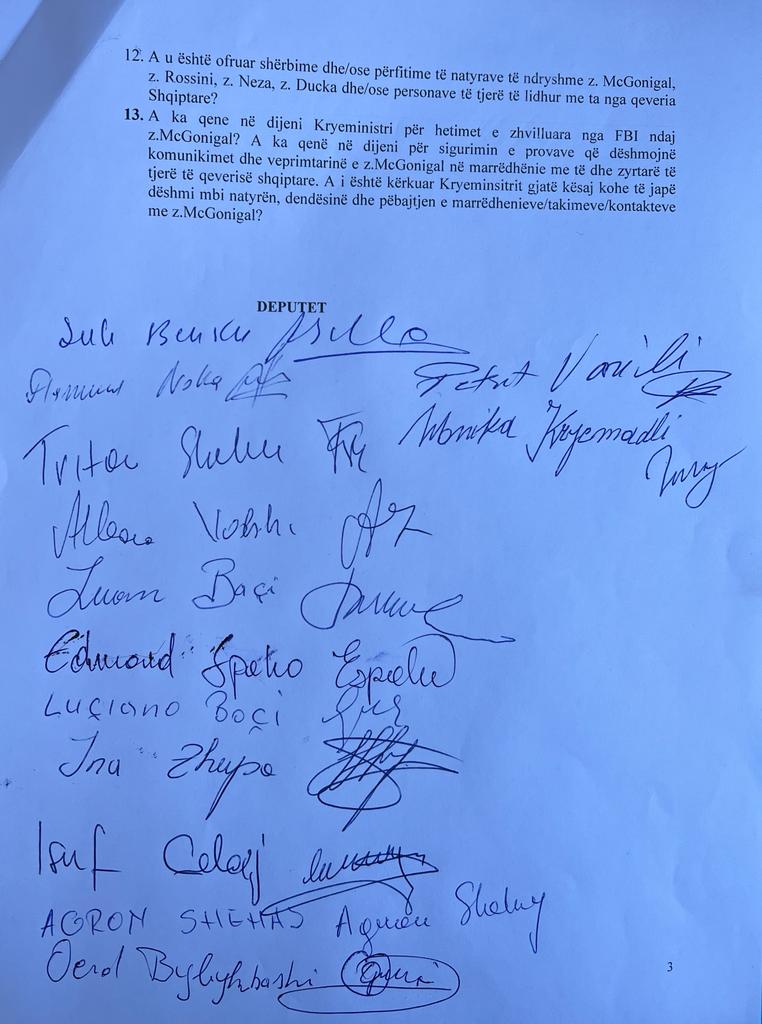 12. A u është ofruar shërbime dhe/ose përfitime të natyrave të ndryshme z. McGonigal,
z. Rossini, z. Neza, z. Ducka dhe/ose personave të tjerë të lidhur me ta nga qeveria
Shqiptare?
13. A ka qene në dijeni Kryeministri për hetimet e zhvilluara nga FBI ndaj
z.McGonigal? A ka qenë në dijeni për sigurimin e provave që dëshmojnë
komunikimet dhe veprimtarinë e z.McGonigal në marrëdhënie me të dhe zyrtarë të
tjerë të qeverisë shqiptare. A i është kërkuar Kryeminsitrit gjatë kësaj kohe të japë
dëshmi mbi natyrën, dendësinë dhe pëbajtjen e marrëdhenieve/takimeve/kontakteve
me z.McGonigal?
DEPUTET
Petrit Vasili
Monika Kryemadhi
Tritan Shehu
Luan Baçi
Edmond Spaho
LUÇIANO BOÇI
Ina Zhupa
Isuf Celaj
AGRON SHEHAJ Agron Shehaj
Oerd Bylykbashi
3